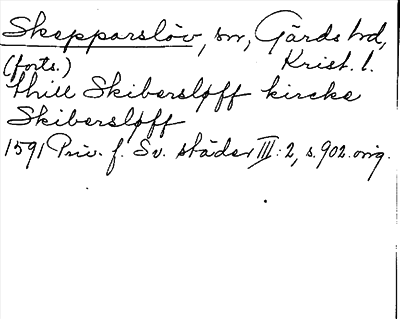 Skepparslöv, sn, Gärds hd,
(forts.) Krist. l.
thill Skibersløff kircke
Skibersløff
1591 Priv. f. Sv. städer III:2, s. 902. orig.